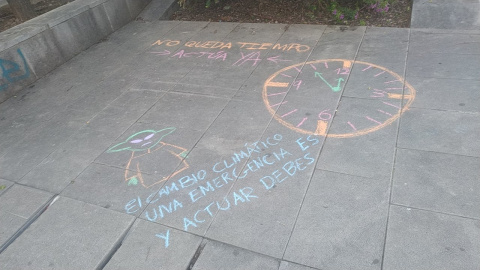 NO QUEDA TIEMPO
→ACTÚA YA←
12
3
6
9
EL CAMBIO CLIMÁTICO
UNA EMERGENCIA ES
Y ACTUAR DEBES